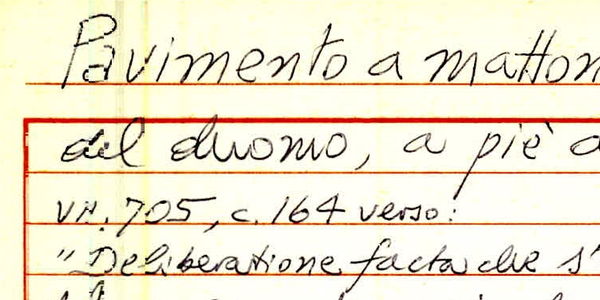 Pavimento a matton
del duomo, a piè d
VII. 705, c. 164 verso:
"Deliberatione facta che s'